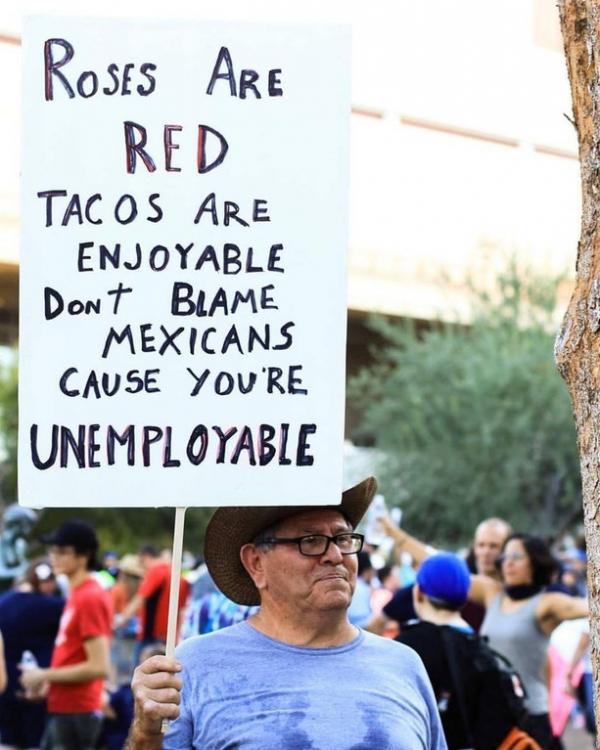 Roses Are
RED
TACOS ARE
ENJOYABLE
DonT BLAME
MEXICANS
CAUSE YOU'RE
UNEMPLOYABLE